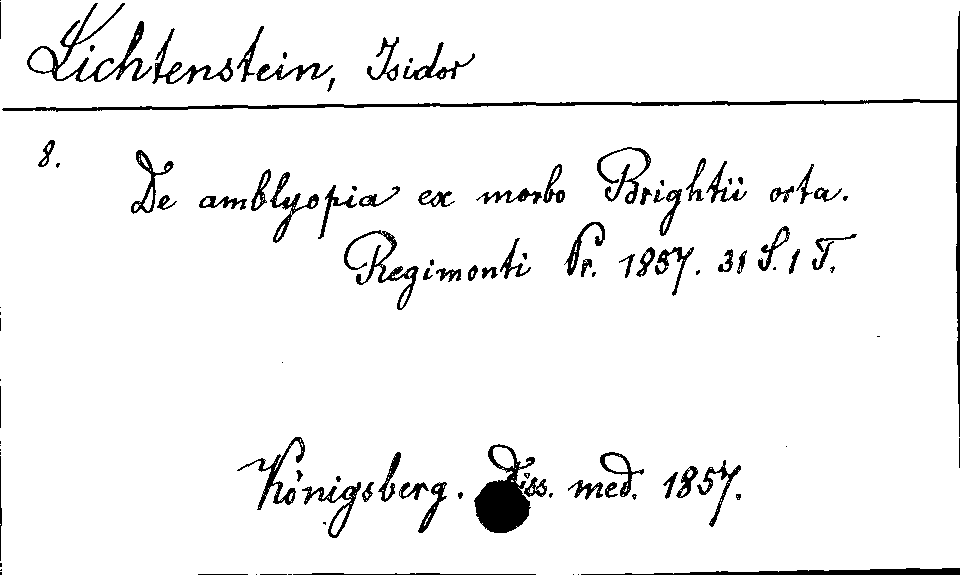 Lichtenstein, Isidor
8.
De amblyopia ex morbo Brightii orta.
Regimonti Pr. 1857. 31 S. 1 T.
Königsberg. Diss. med. 1857.